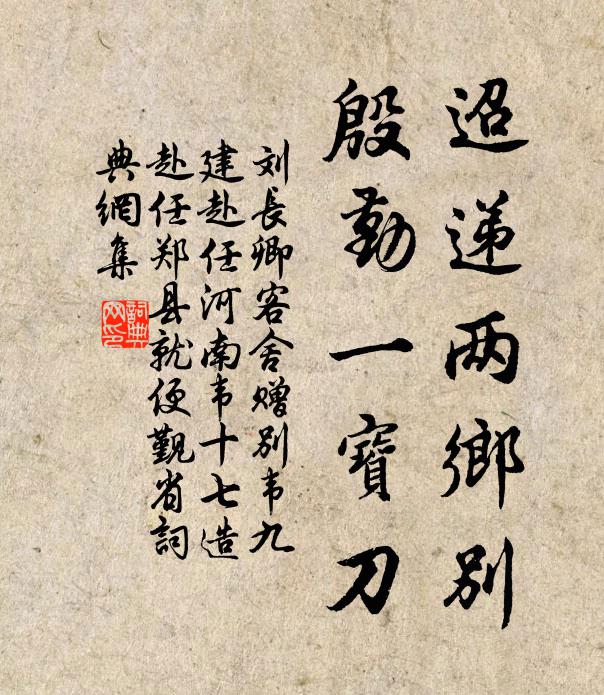 迢递两鄉别
殷勤一寶刀
刘長卿客舍赠别韦九
建赴任河南韦十七造
赴任郑县就便觐省詞
典網集
詞典
网印